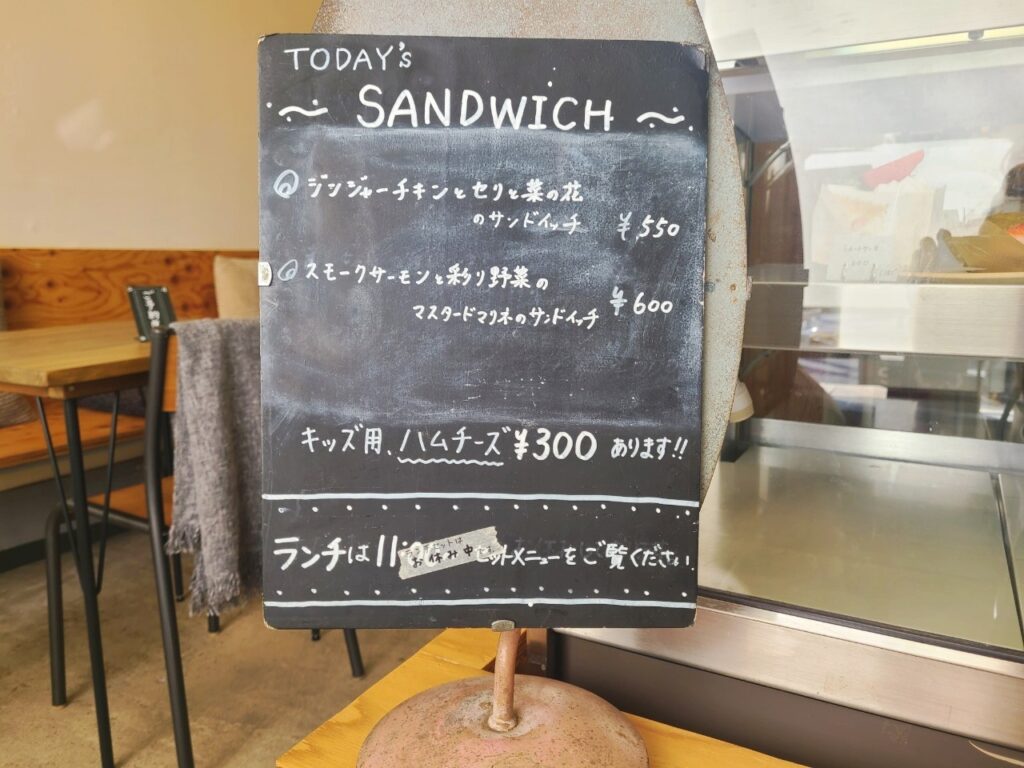 TODAY's
~ SANDWICH ~
ジンジャーチキンとセリと菜の花
のサンドイッチ ¥550
スモークサーモンと彩り野菜の
マスタードマリネのサンドイッチ ¥600
キッズ用、ハムチーズ ¥300 あります!!
ランチは11 お休み中 セットメニューをご覧ください